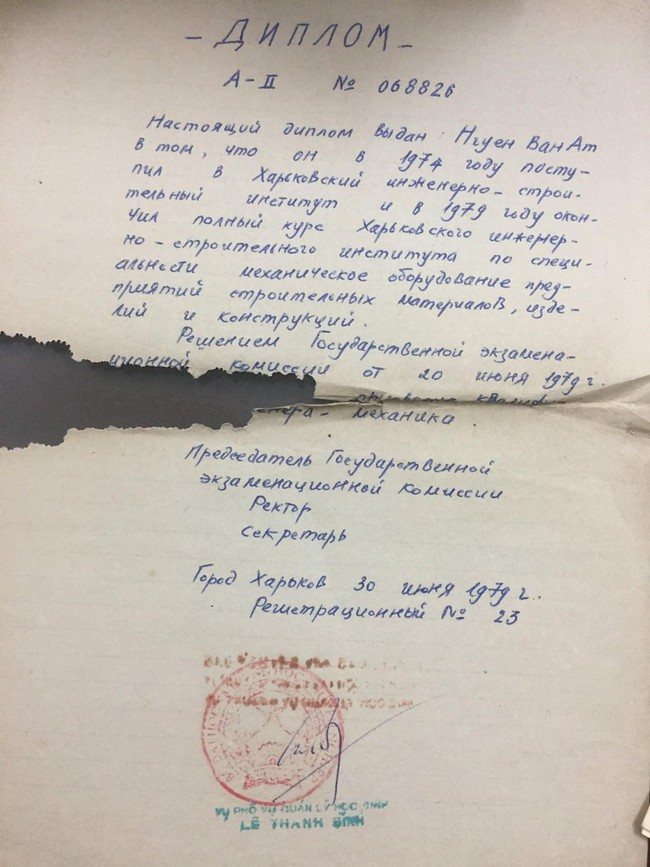 - ДИПЛОМ -
А-II № 068826
Настоящий диплом выдан: Нгуен Ван Ат
в том, что он в 1974 году посту-
пил в Харьковский инженерно-строи-
тельный институт и в 1979 году окон-
чил полный курс Харьковского инженер-
но-строительного института по специ-
альности механическое оборудование пред-
приятий строительных материалов, изде-
лий и конструкций.
Решением Государственной экзамена-
ционной комиссии от 20 июня 1979 г.
механика
Председатель Государственной
экзаменационной комиссии
Ректор
Секретарь
Город Харьков 30 июня 1979 г.
Регистрационный № 23
VỤ PHÓ VỤ QUẢN LÝ HỌC SINH
LÊ THANH BÌNH